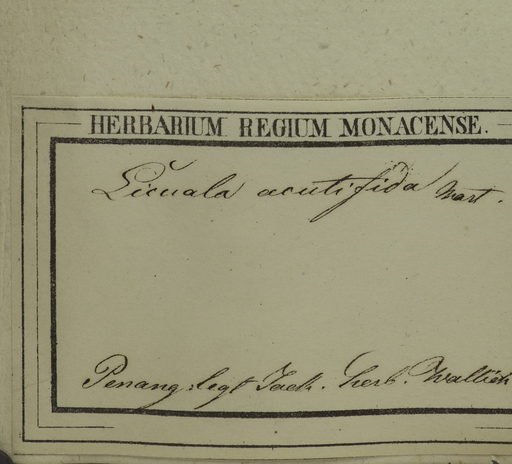 HERBARIUM REGIUM MONACENSE.
Licuala acutifida Mart.
Penang. legt Jack. herb. Wallich